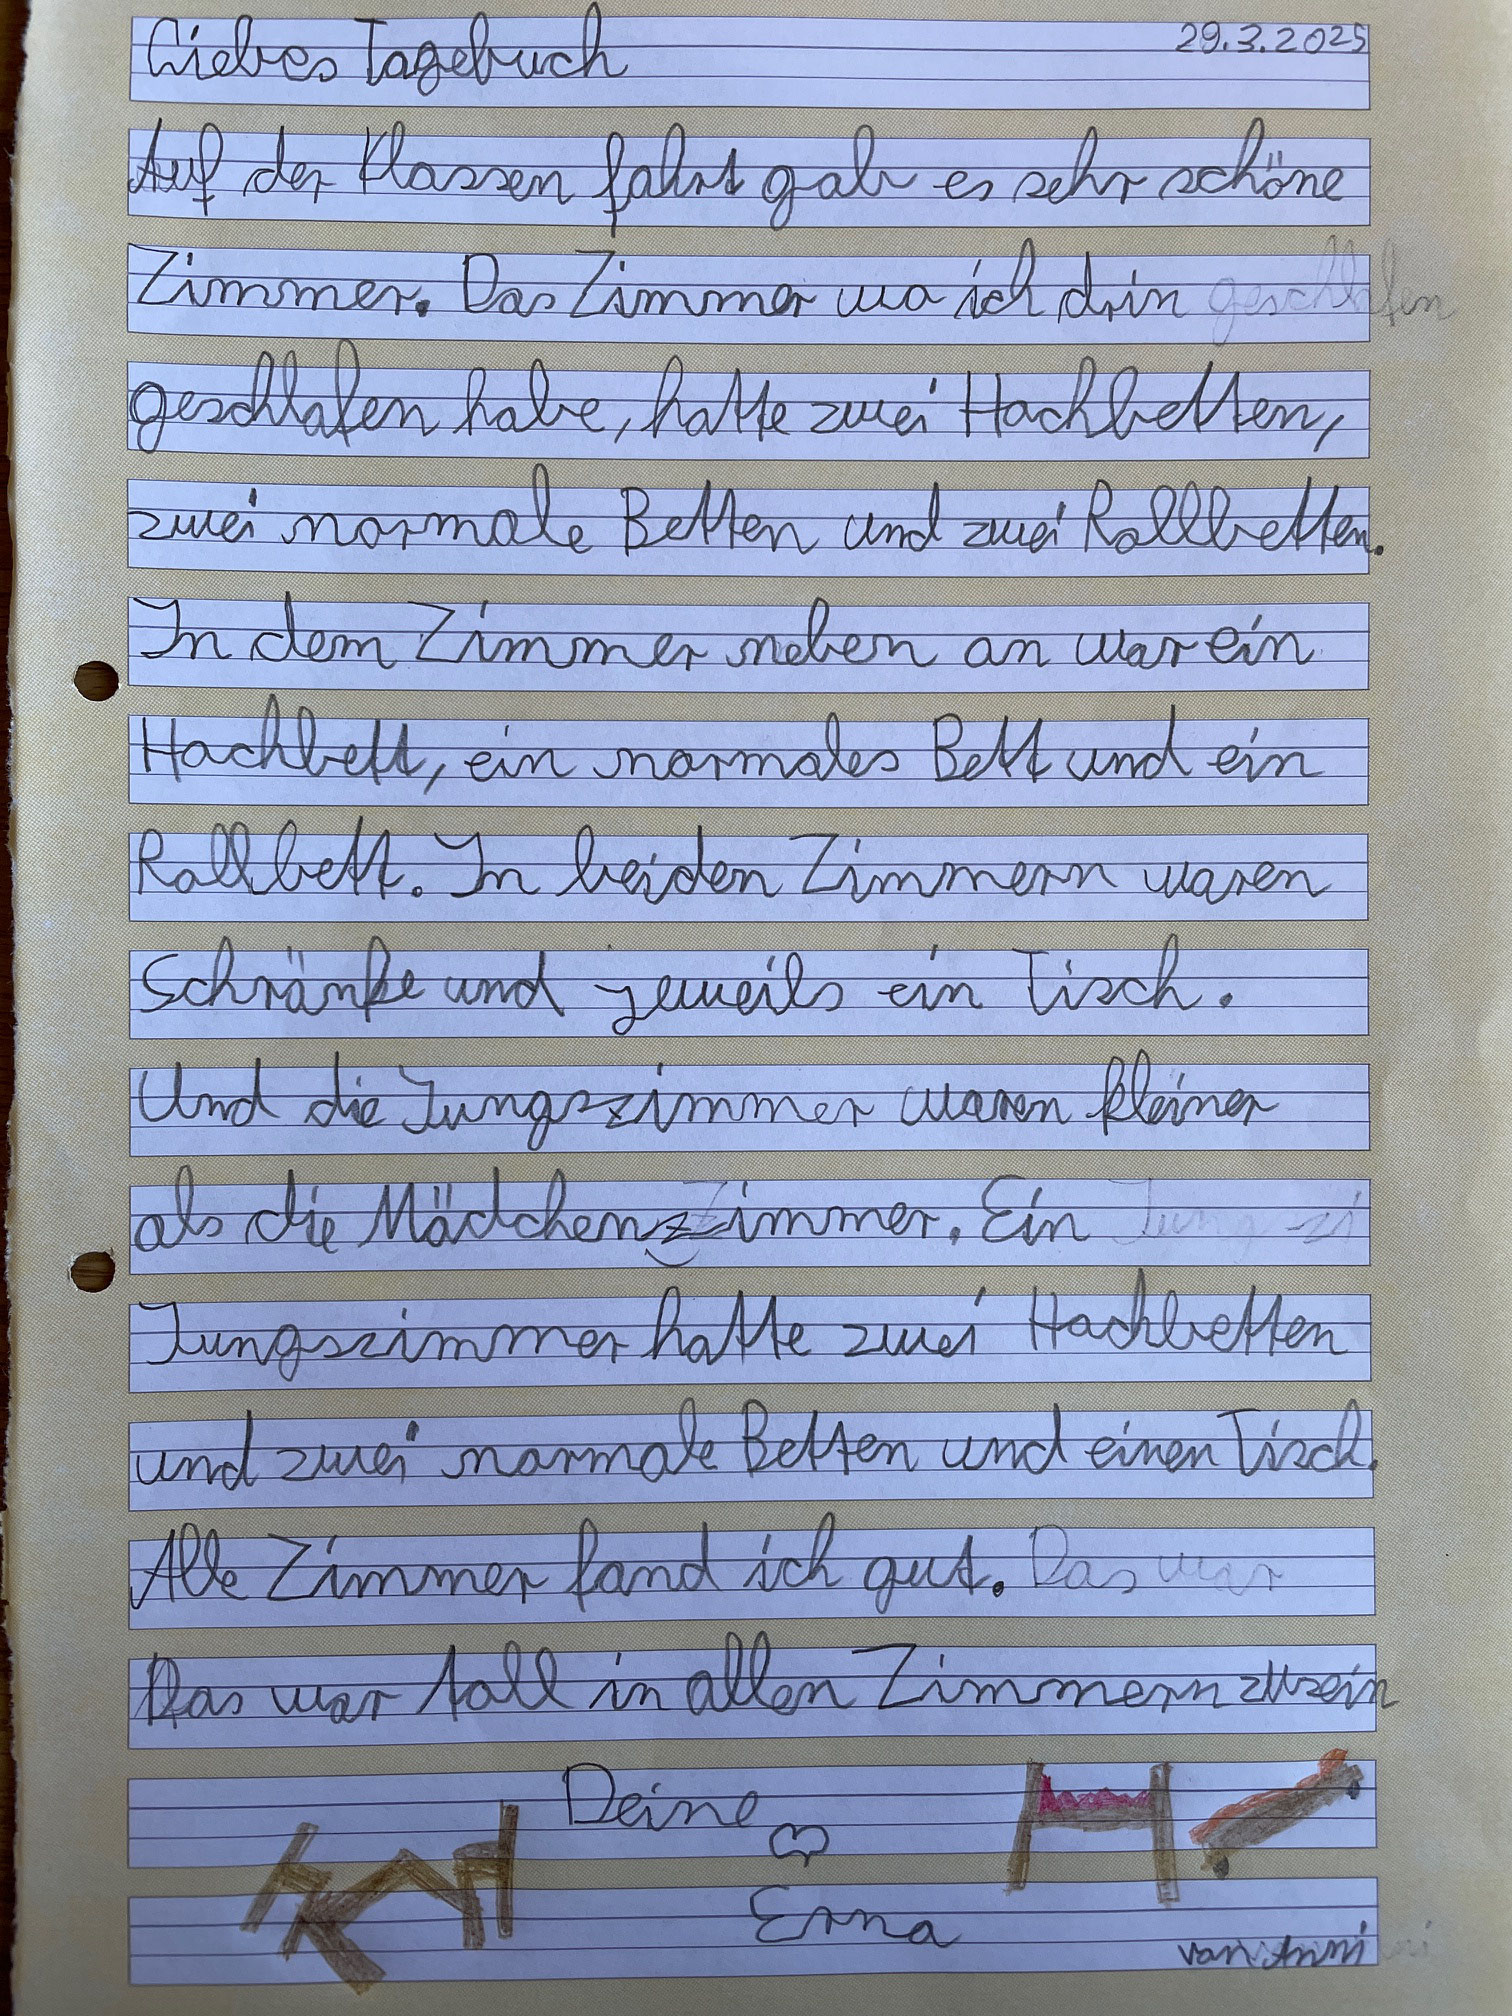 Liebes Tagebuch 29.3.2025
Auf der Klassen fahrt gab es sehr schöne
Zimmer. Das Zimmer wo ich drin geschlafen
geschlafen habe, hatte zwei Hochbetten,
zwei normale Betten und zwei Rollbetten.
In dem Zimmer neben an war ein
Hochbett, ein normales Bett und ein
Rollbett. In beiden Zimmern waren
Schränke und jeweils ein Tisch.
Und die Jungszimmer waren kleiner
als die Mädchenzimmer. Ein Jungszi
Jungszimmer hatte zwei Hochbetten
und zwei normale Betten und einen Tisch.
Alle Zimmer fand ich gut. Das war
Das war toll in allen Zimmern zusein
Deine
Erna
von Anni